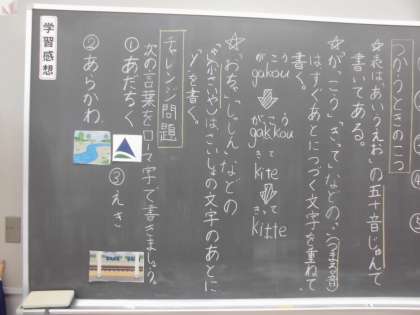 つかうときのコツ
☆表は「あいうえお」の五十音じゅんで
書いてある。
☆「がっこう」「きって」などの、(つまる音)
はすぐあとにつづく文字を重ねて
書く。
がこう
gakou
がっこう
gakkou
きて
kite
きって
kitte
☆「おちゃ」「じしん」などの
は、さいしょの文字のあとに
yを書く。
チャレンジ問題
次の言葉をローマ字で書きましょう。
①あだちく
②あらかわ
③えき
学習感想